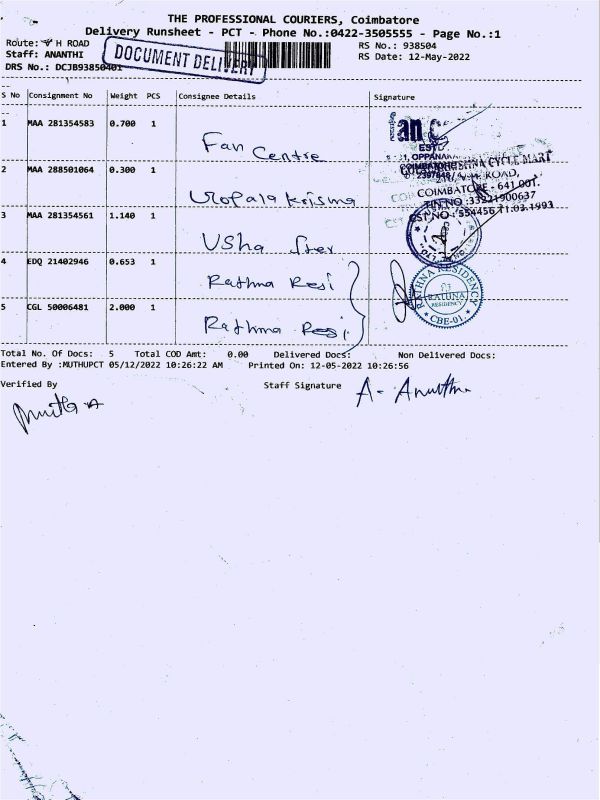 THE PROFESSIONAL COURIERS, Coimbatore
Delivery Runsheet - PCT - Phone No.:0422-3505555 - Page No.:1
Route: V H ROAD
Staff: ANANTHI
DRS No.: DCJB93850401
DOCUMENT DELIVERY
RS No.: 938504
RS Date: 12-May-2022
S No Consignment No Weight PCS Consignee Details Signature
1 MAA 281354583 0.700 1 Fan Centre
2 MAA 288501064 0.300 1 Gopala Krisma
3 MAA 281354561 1.140 1 USha
4 EDQ 21402946 0.653 1 Rathna Resi
5 CGL 50006481 2.000 1 Rathna Resi.
EST
OPPANAKA
KRISHNA CYCLE MART
ROAD,
COIMBATORE - 641 001.
TIN NO :33221900637
CST NO : 554456 11.03.1993
RATHNA RESIDENCY
RATHNA
RESIDENCY
CBE-01.
Total No. Of Docs: 5 Total COD Amt: 0.00 Delivered Docs: Non Delivered Docs:
Entered By :MUTHUPCT 05/12/2022 10:26:22 AM Printed On: 12-05-2022 10:26:56
Verified By Staff Signature